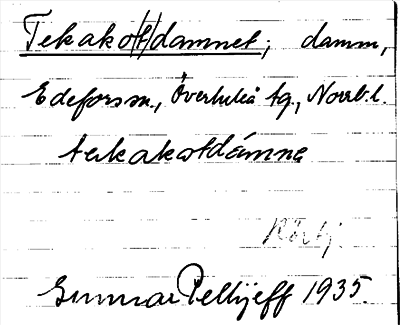 Tekako/t/dammet; damm,
Edeforsm., Överluleå tg., Norrb.l.
tekakotdámne
Gunnar Pellijeff 1935.